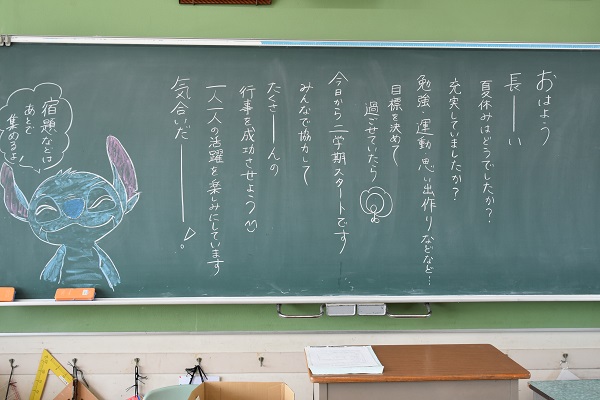 おはよう
長――い
夏休みはどうでしたか?
充実していましたか?
勉強、運動、思い出作りなどなど…
目標を決めて
過ごせていたら
今日から二学期スタートです
みんなで協力して
たくさーんの
行事を成功させよう
一人一人の活躍を楽しみにしています
気合いだ―――!
宿題などは
あとで
集めるよ!